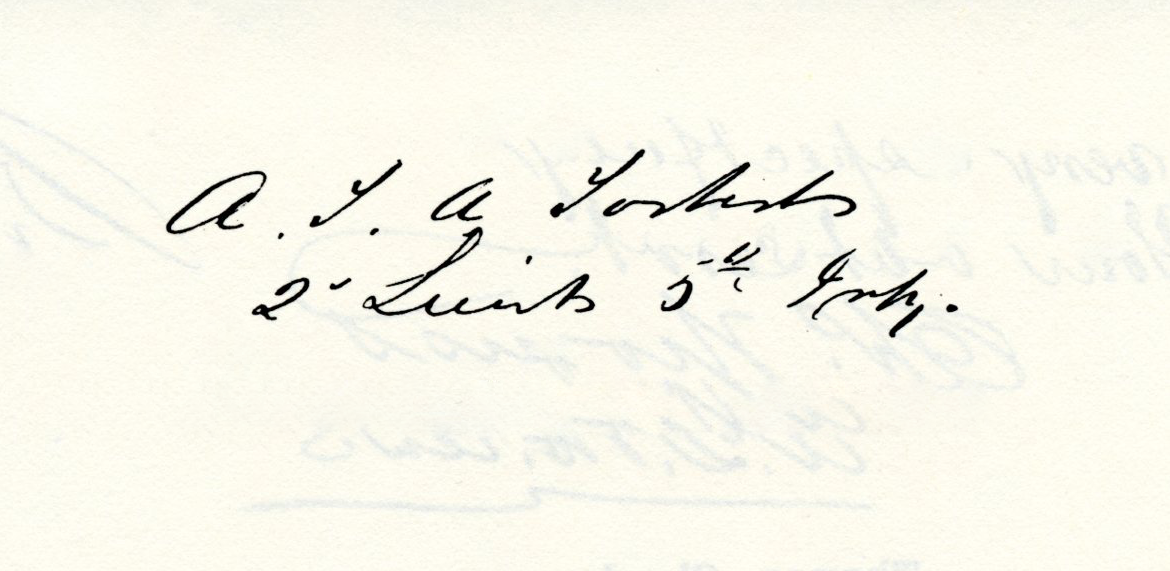 A. T. A Torbert
2d Lieut 5th Infy.